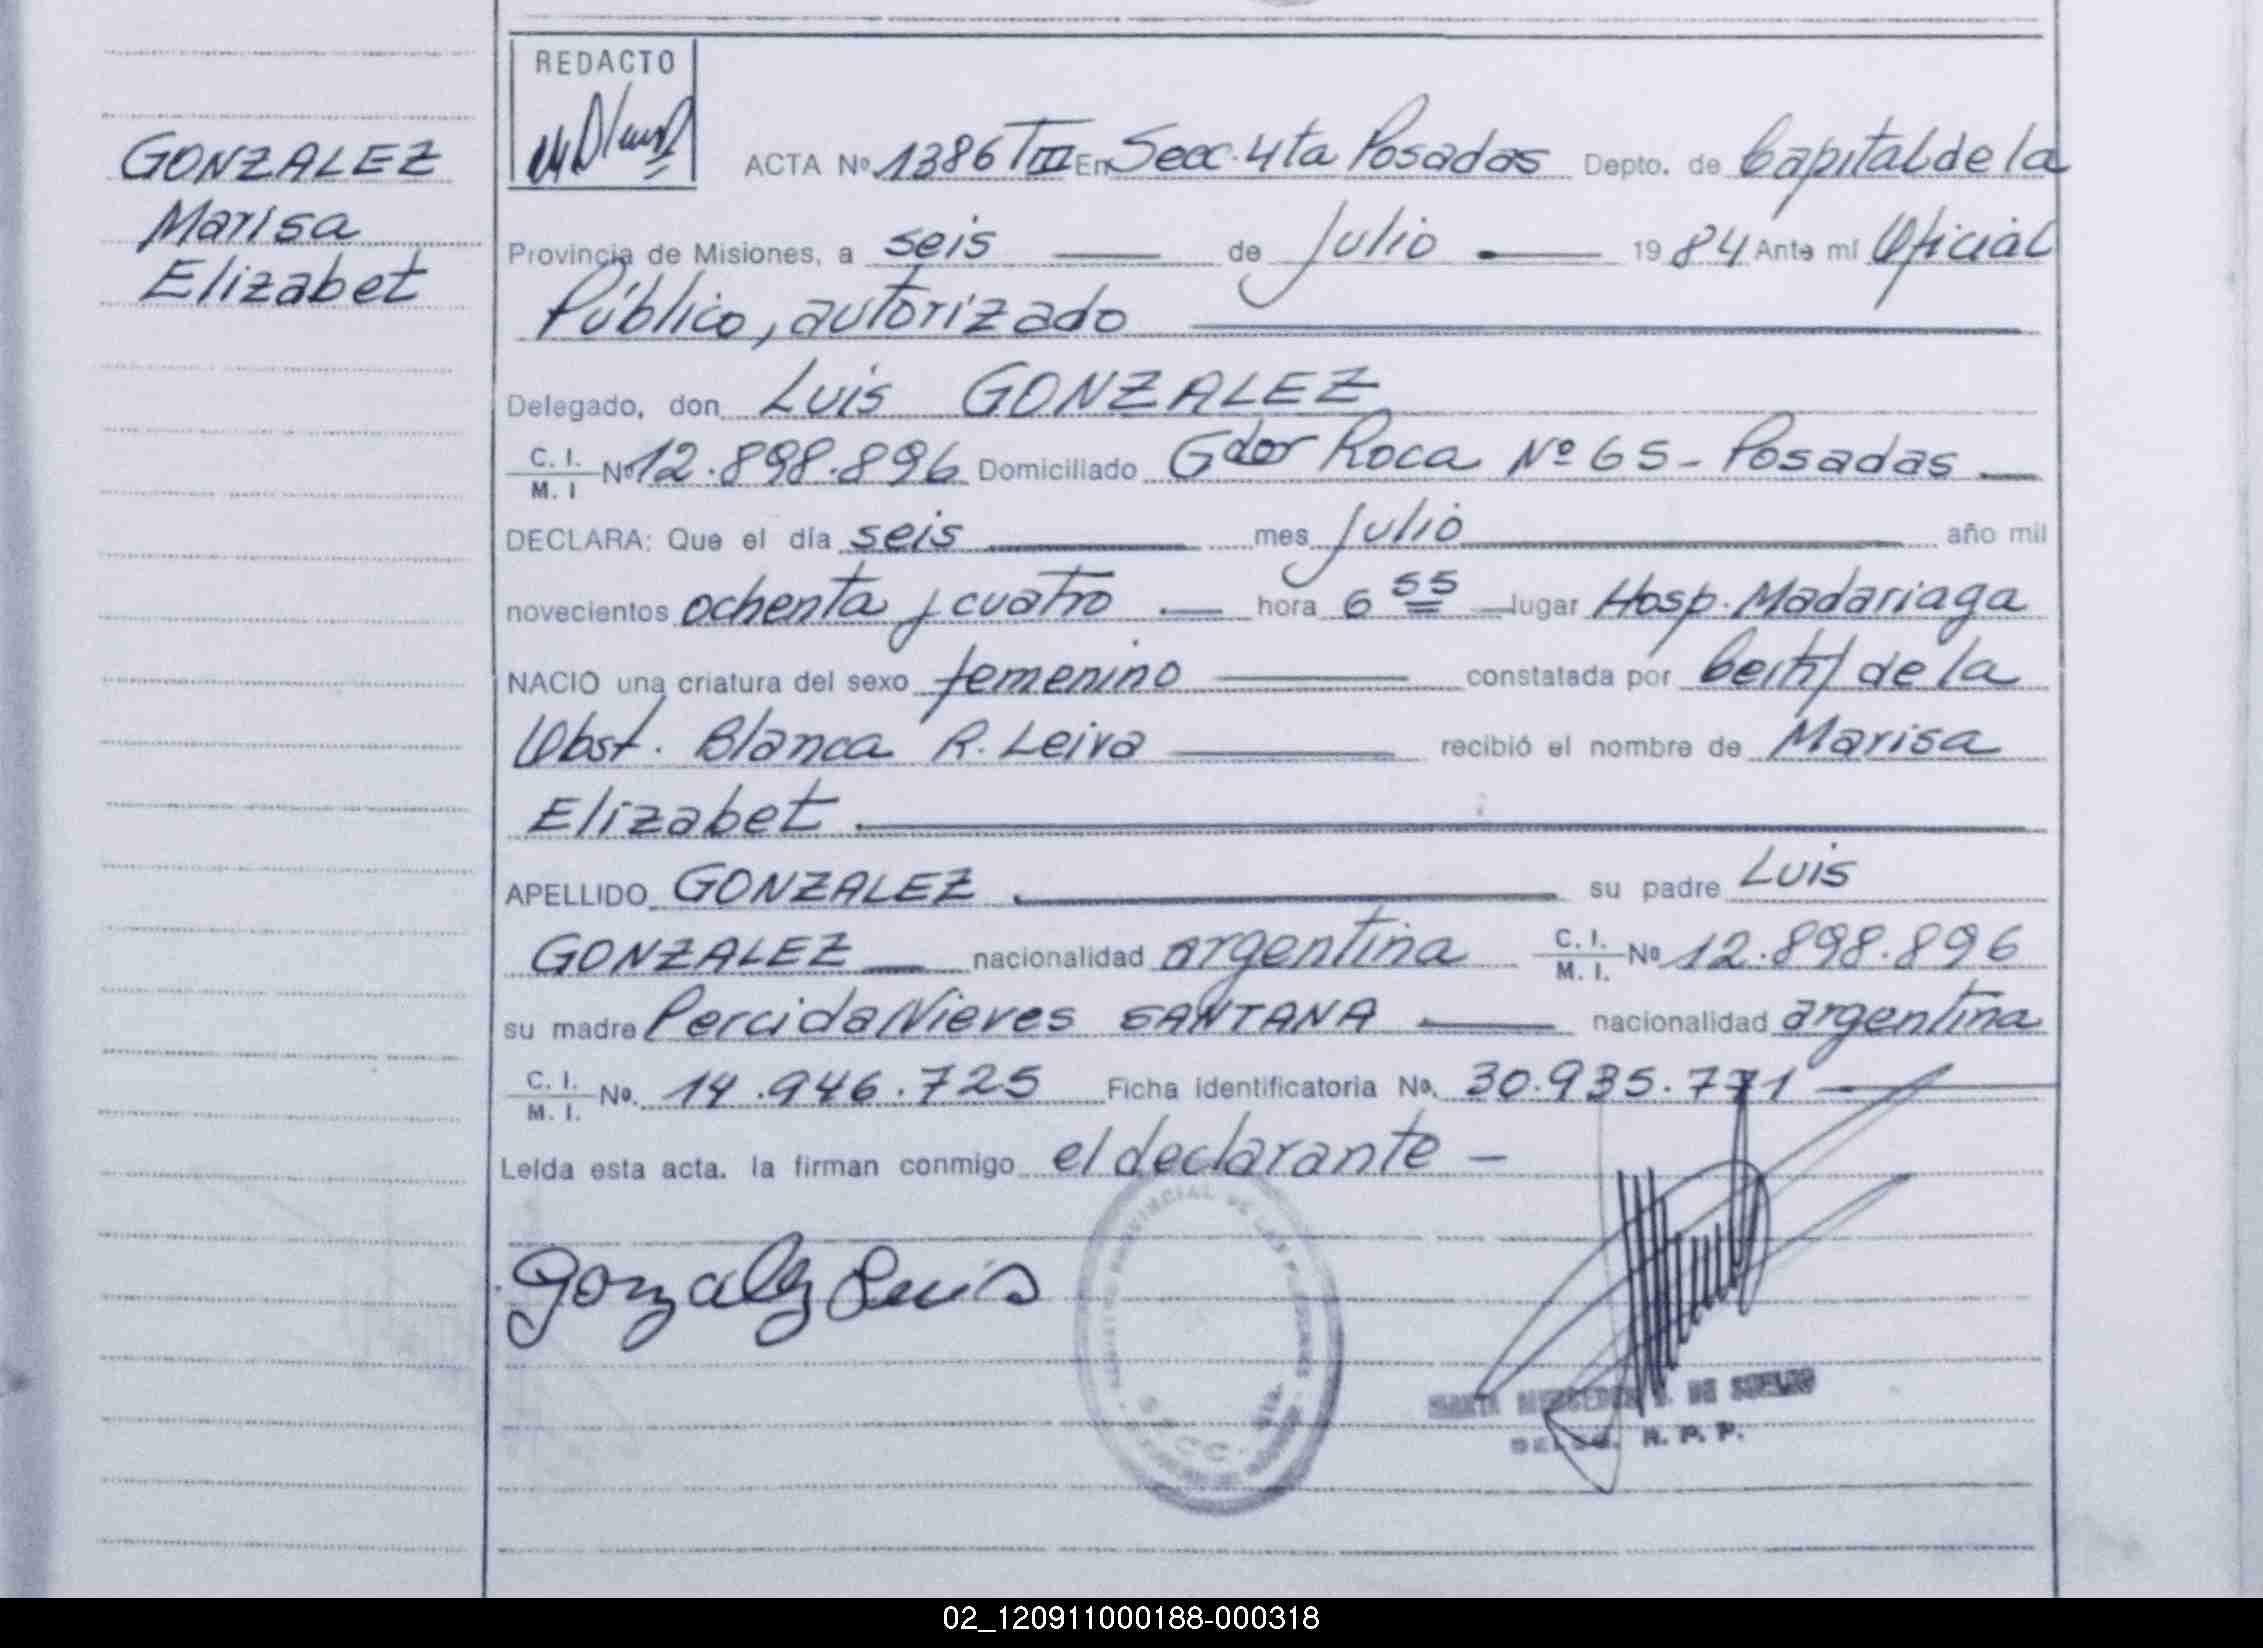 REDACTO
GONZALEZ
Marisa
Elizabet
ACTA Nº 1386 T III En Secc. 4ta Posadas Depto. de Capital de la
Provincia de Misiones, a seis de Julio 1984 Ante mí Oficial
Público, autorizado
Delegado, don Luis GONZALEZ
C. I. M. I Nº 12.898.896 Domiciliado Gdor Roca Nº 65 - Posadas
DECLARA: Que el día seis mes Julio año mil
novecientos ochenta y cuatro hora 6 55 lugar Hosp. Madariaga
NACIO una criatura del sexo femenino constatada por Certif de la
Obst. Blanca R. Leiva recibió el nombre de Marisa
Elizabet
APELLIDO GONZALEZ su padre Luis
GONZALEZ nacionalidad argentina C. I. M. I. Nº 12.898.896
su madre Percida Nieves SANTANA nacionalidad argentina
C. I. M. I. Nº. 14.946.725 Ficha identificatoria Nº. 30.935.771
Leída esta acta. la firman conmigo el declarante -
Gonzalez Luis
PROVINCIAL DE LAS PERSONAS
SECC. 4ta.
DE
R. P. P.
02_120911000188-000318